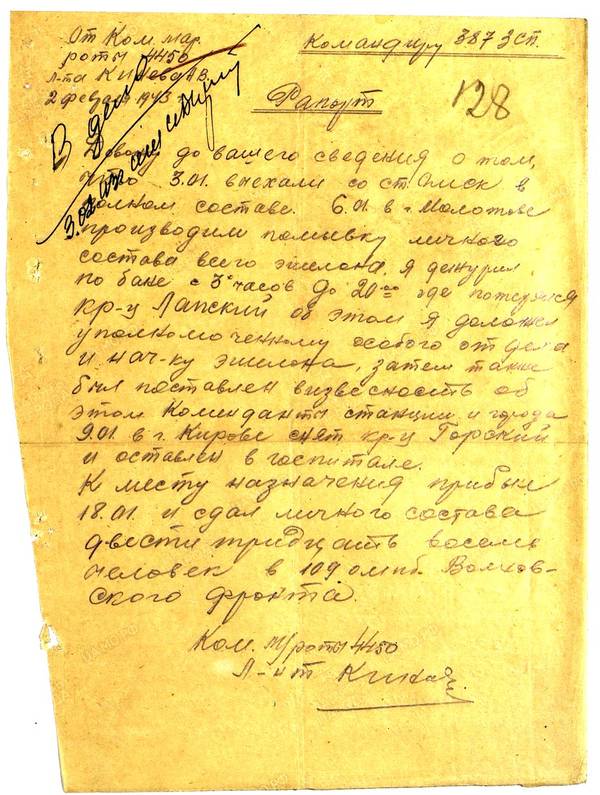 От Ком. мар.
роты 4450
Л-та
2 феврал 1943
Командиру 387 Зсп.
Рапорт
128
В дело
3.02
Довожу до вашего сведения о том,
что 3.01. выехали со ст. Омск в
полном составе. 6.01 в г. Молотове
производили помывку личного
состава всего эшелона. Я дежурил
по бане с 3 часов до 20 00 где потерялся
кр-ц Лапский об этом я доложил
уполномоченному особого отдела
и нач-ку эшелона, затем также
был поставлен визвесность об
этом Коменданты станции и города
9.01 в г. Кирове снят кр-ц Горский
и оставлен в госпитале.
К месту назначения прибыл
18.01. и сдал личного состава
двести тридцать восемь
человек в 109 Волхов-
ского фронта.
Ком. м/роты 4450
Л-нт